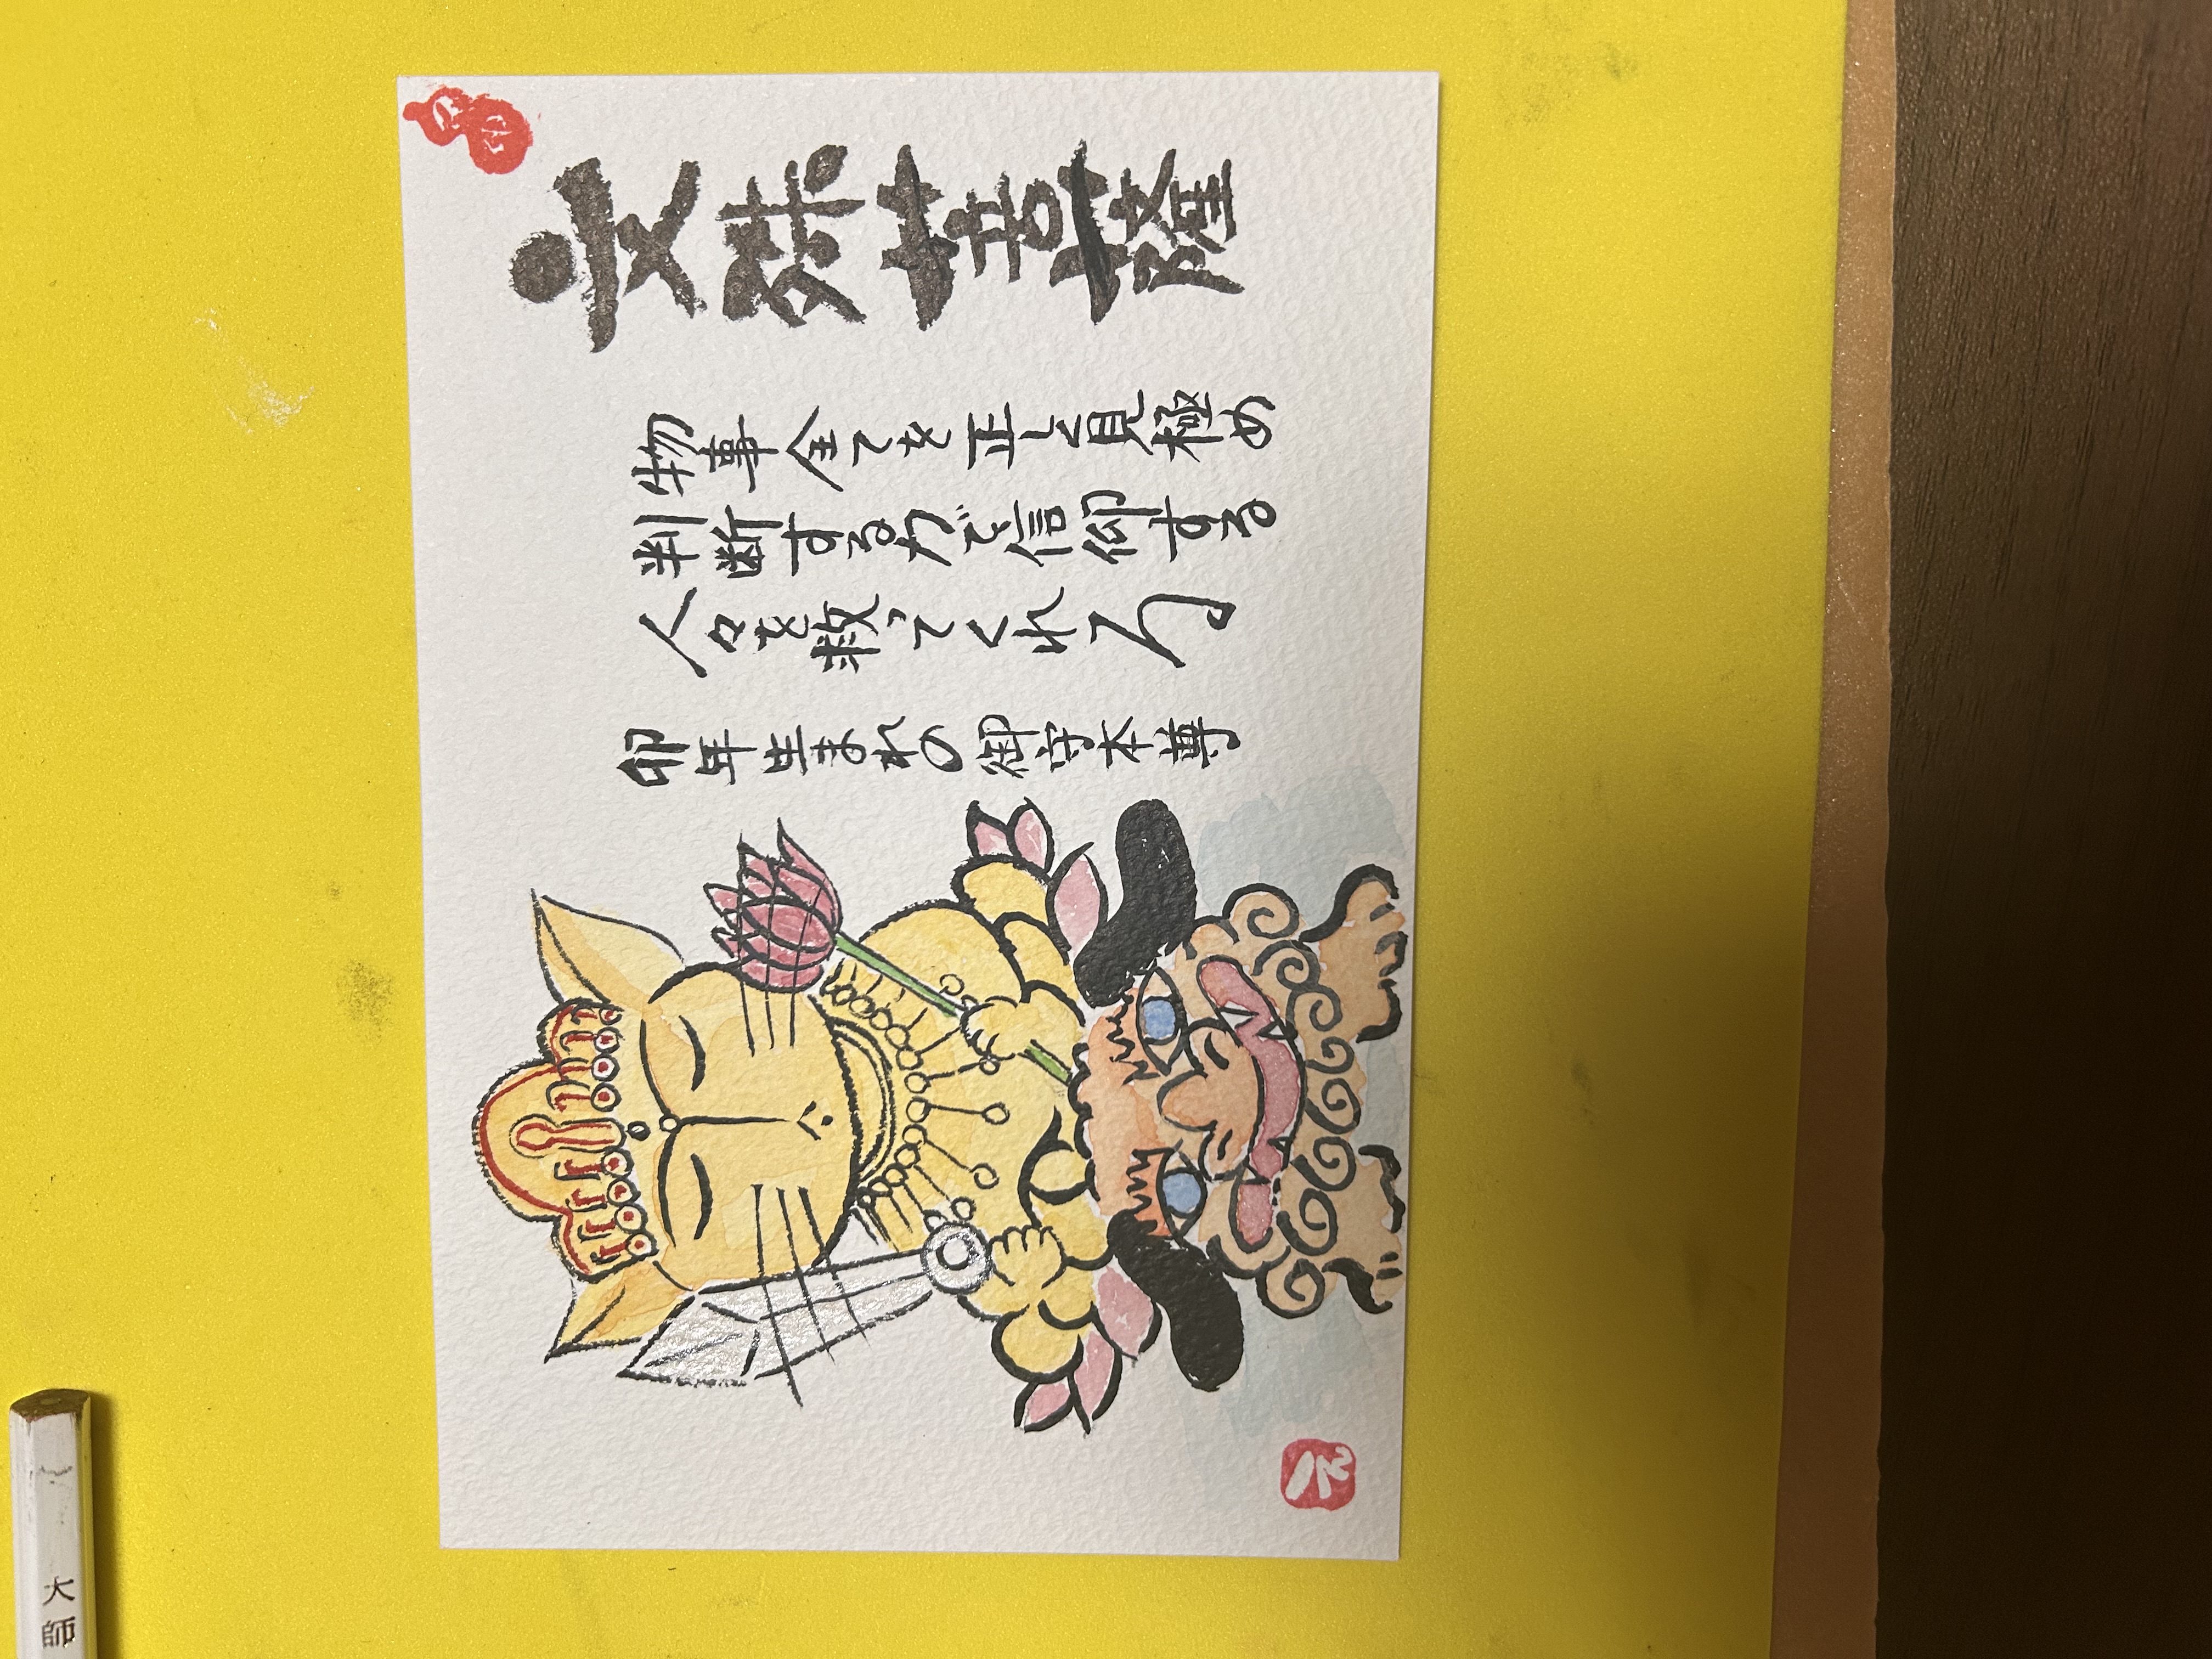 文殊菩薩
物事全てを正しく見極め
判断する力で信仰する
人々を救ってくれる
卯年生まれの御守本尊
大師